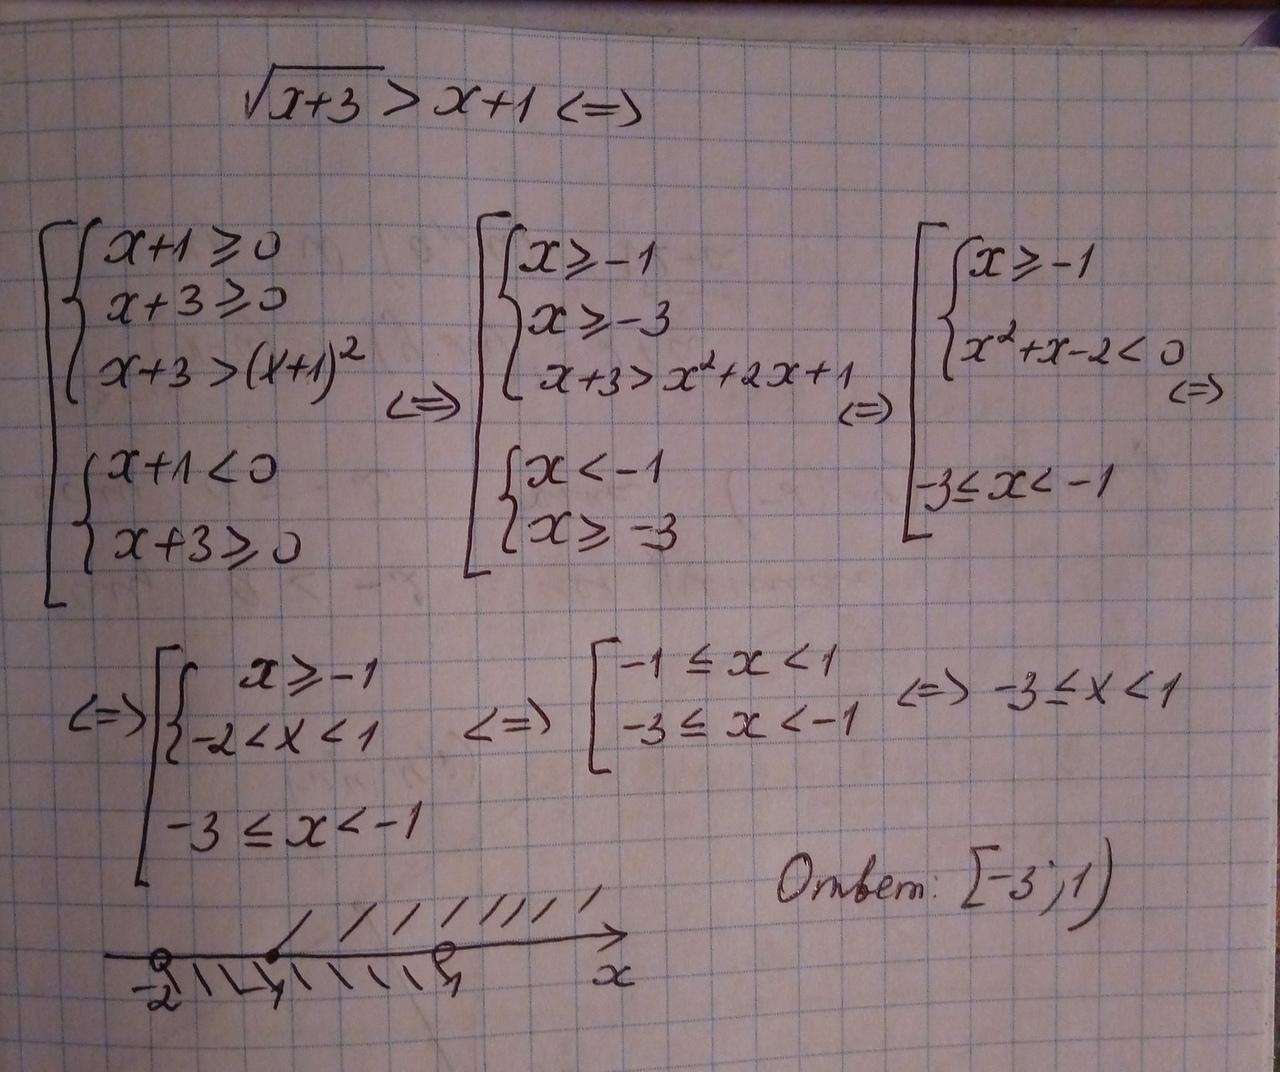 √(x+3) > x+1 <=>
[ { x+1 ⩾ 0
x+3 ⩾ 0
x+3 > (x+1)²
{ x+1 < 0
x+3 ⩾ 0
<=> [ { x ⩾ -1
x ⩾ -3
x+3 > x²+2x+1
{ x < -1
x ⩾ -3
<=> [ { x ⩾ -1
x²+x-2 < 0
-3 ≤ x < -1
<=>
<=> [ { x ⩾ -1
-2 < x < 1
-3 ≤ x < -1
<=> [ -1 ≤ x < 1
-3 ≤ x < -1
<=> -3 ≤ x < 1
-2 -1 1 x
Ответ: [-3; 1)